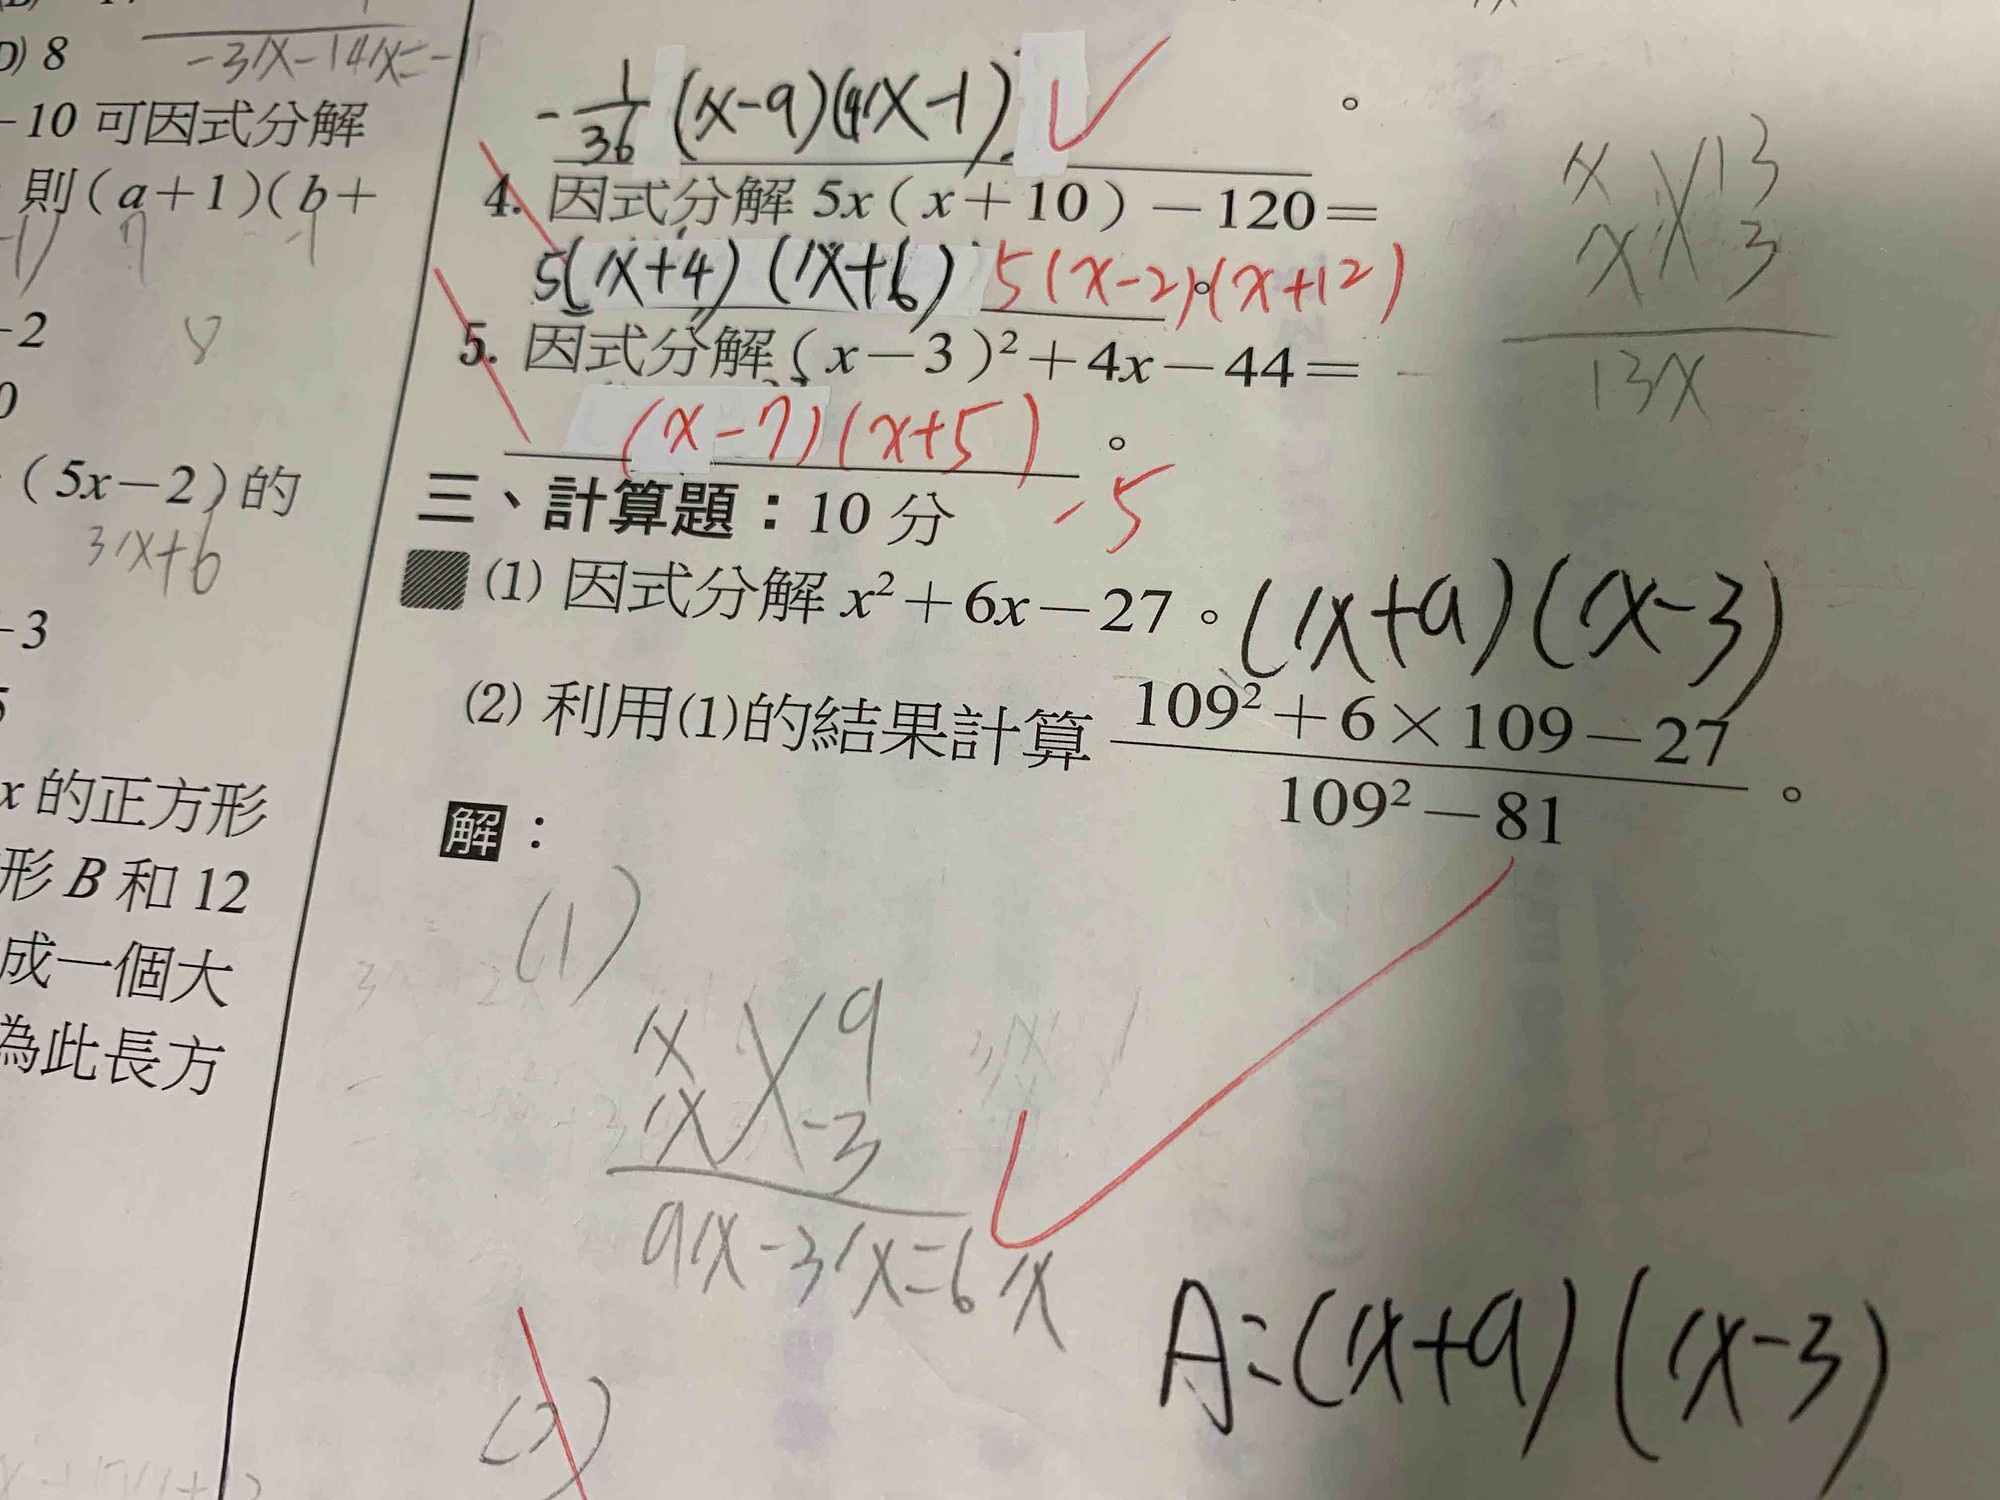 D) 8
-3x-14x=-
-10 可因式分解
則(a+1)(b+
7 -1
-2
8
0
(5x-2)的
3x+6
-3
5
x 的正方形
形 B 和 12
成一個大
為此長方
-1/36 (x-9)(4x-1)
。
4. 因式分解 5x(x+10)-120=
5(x+4)(x+6) 5(x-2)(x+12)
。
5. 因式分解(x-3)²+4x-44=
(x-7)(x+5)
。
-5
x 13
x 3
13x
三、計算題：10 分
(1) 因式分解 x²+6x-27。(x+9)(x-3)
(2) 利用(1)的結果計算 109²+6×109-27
109²-81
。
解：
(1)
x 9
x -3
9x-3x=6x
A=(x+9)(x-3)
(2)